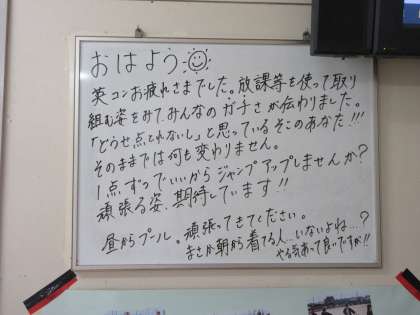 おはよう
英コンお疲れさまでした。放課等を使って取り
組む姿をみて、みんなのガチさが伝わりました。
「どうせ点とれないし」と思っているそこのあなた!!!
そのままでは何も変わりません。
1点ずつでいいからジャンプアップしませんか?
頑張る姿、期待しています!!
昼からプール。頑張ってきてください。
まさか朝から着てる人…いないよね…?
やる気あって良いですが!!